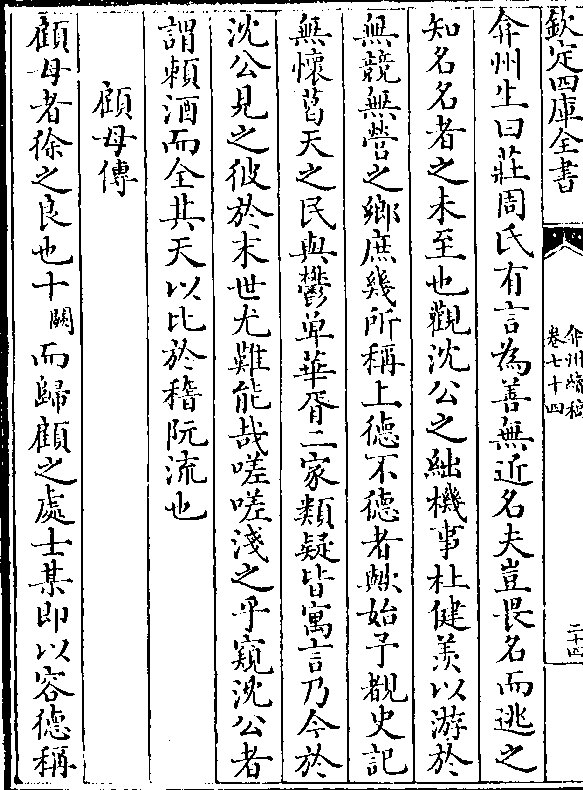 欽定四庫全書
弇州續稿
卷七十四
二十四
弇州生曰莊周氏有言為善無近名夫豈畏名而逃之
知名名者之未至也觀沈公之絀機事杜健羨以游於
無競無營之鄉庶幾所稱上德不德者歟始予覩史記
無懷葛天之民與鬱單華胥二家類疑皆寓言乃今於
沈公見之彼於末世尤難能哉嗟嗟淺之乎窺沈公者
謂頼酒而全其天以比於稽阮流也
顧母傳
顧母者徐之良也十闕而歸顧之處士某即以容德稱